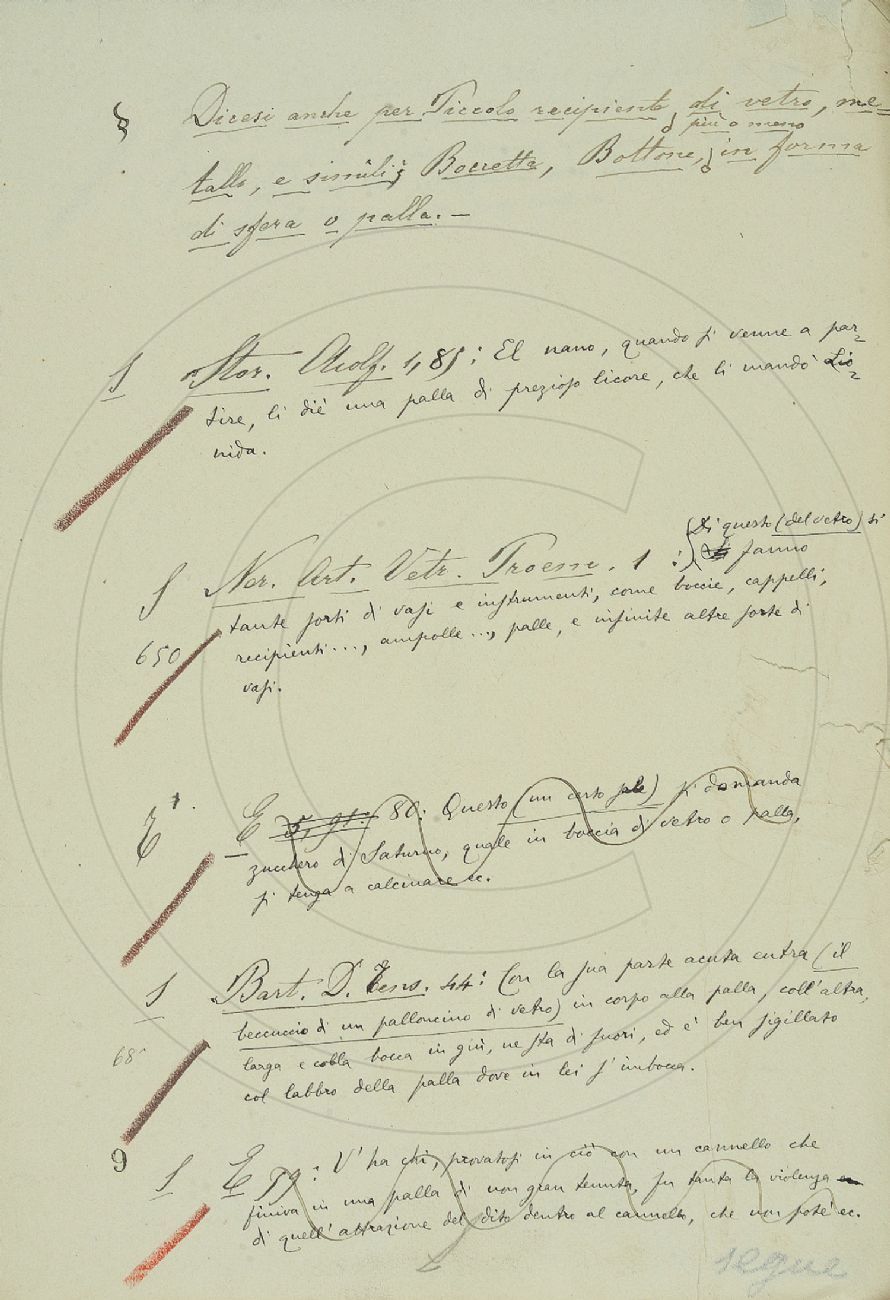 § Dicesi anche per Piccolo recipiente, di vetro, me=
o più o meno
tallo, e simili; Boccetta, Bottone, in forma
di sfera o palla. —
S Stor. Aiolf. 1, 85: El nano, quando si venne a par=
tire, li diè una palla di prezioso licore, che li mandò Lio=
nida.
(Di questo (del vetro) si
S Ner. Art. Vetr. Proem. 1: fanno
tante sorti di vasi e instrumenti, come boccie, cappelli,
650 recipienti..., ampolle..., palle, e infinite altre sorte di
vasi.
E 80: Questo (un certo sale) si domanda
zucchero di Saturno, quale in boccia di vetro o palla,
si tenga a calcinare ec.
S Bart. D. Tens. 44: Con la sua parte acuta entra (il
beccuccio di un palloncino di vetro) in corpo alla palla, coll'altra,
68 larga e colla bocca in giù, ne sta di fuori, ed è ben sigillato
col labbro della palla dove in lei s'imbocca.
9 S E 59: V'ha chi, provatosi in ciò con un cannello che
finiva in una palla di non gran tenuta, fu tanta la violenza
di quell'attrazione del dito dentro al cannello, che non potè ec.
segue